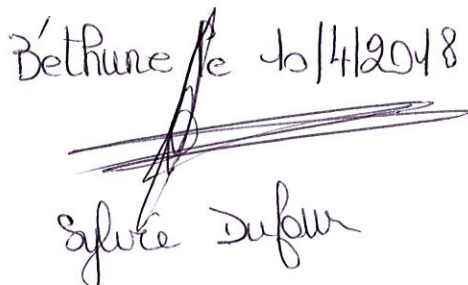 Béthune le 10/4/2018
Sylvie Dufour